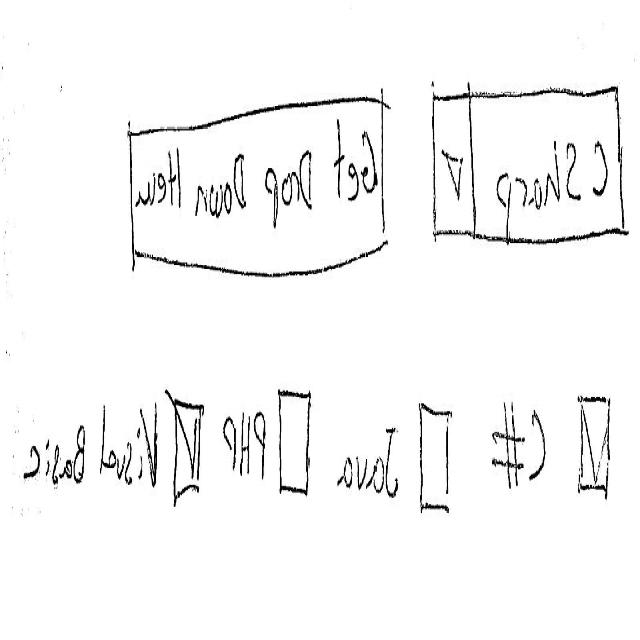 CSharp Get Drop Down Item
C# Java PHP Visual Basic